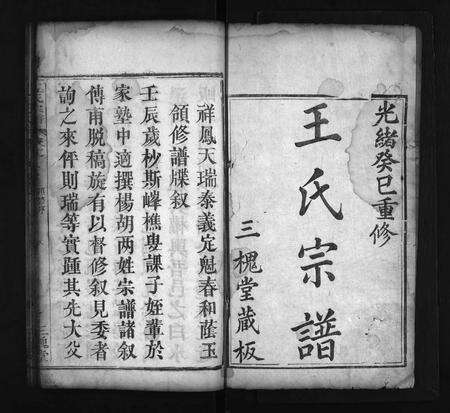 光緒癸巳重修
王氏宗譜
三槐堂藏板
祥鳳天瑞泰義定魁春和蔭玉
領修譜牒叙
壬辰歲杪斯峰樵叟課子姪輩於
家塾中適撰楊胡兩姓宗譜諸叙
傳甫脫稿旋有以督修叙見委者
詢之來伻則瑞等實踵其先大父